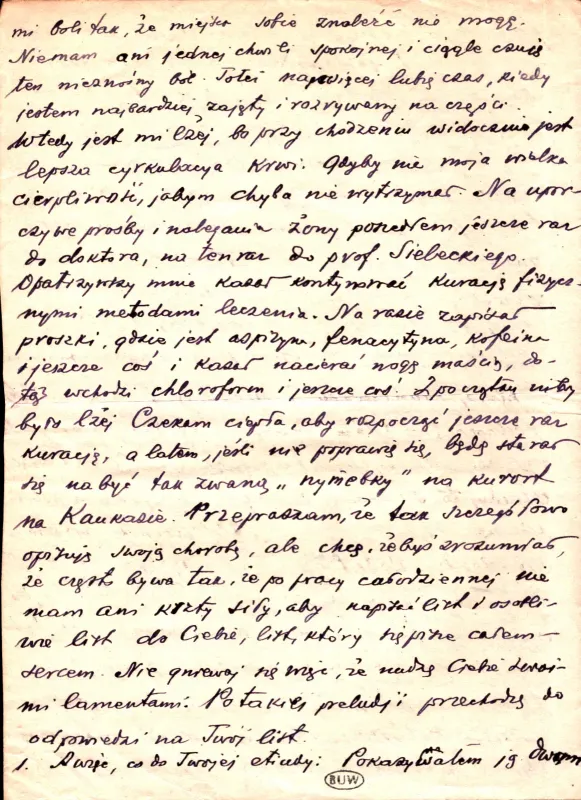 mi boli tak, że miejsca sobie znaleźć nie mogę.
Niemam ani jednej chwili spokojnej i ciągle czuję
ten nieznośny ból. Toteż najwięcej lubię czas, kiedy
jestem najbardziej zajęty i rozrywany na części.
Wtedy jest mi lżej, bo przy chodzeniu widocznie jest
lepsza cyrkulacya krwi. Gdyby nie moja wielka
cierpliwość, jabym chyba nie wytrzymał. Na upor-
czywe prośby i nalegania żony poszedłem jeszcze raz
do doktora, na ten raz do prof. Sieleckiego.
Opatrzywszy mnie kazał kontynować kurację fizycz-
nymi metodami leczenia. Na razie zapisał
proszki, gdzie jest aspiryna, fenacytyna, kofeina
i jeszcze coś i kazał nacierać nogę maścią, do-
tąż wchodzi chloroform i jeszcze coś. Z początku niby
było lżej. Czekam ciepła, aby rozpocząć jeszcze raz
kurację, a latem, jeśli nie poprawię się, będę starał
się nabyć tak zwaną „ " na kurort
na Kaukazie. Przepraszam, że tak szczegółowo
opisuję swoją chorobę, ale chcę, żebyś zrozumiał,
że często bywa tak, że po pracy całodziennej nie
mam ani krzty siły, aby napisać list i osobli-
wie list do Ciebie, list, który się pisze całem
sercem. Nie gniewaj się więc, że nudzę Ciebie swoi-
mi lamentami. Po takiej preludji przechodzę do
odpowiedzi na Twój list.
1. A więc, co do Twojej etiudy: Pokazywałem ją
BUW